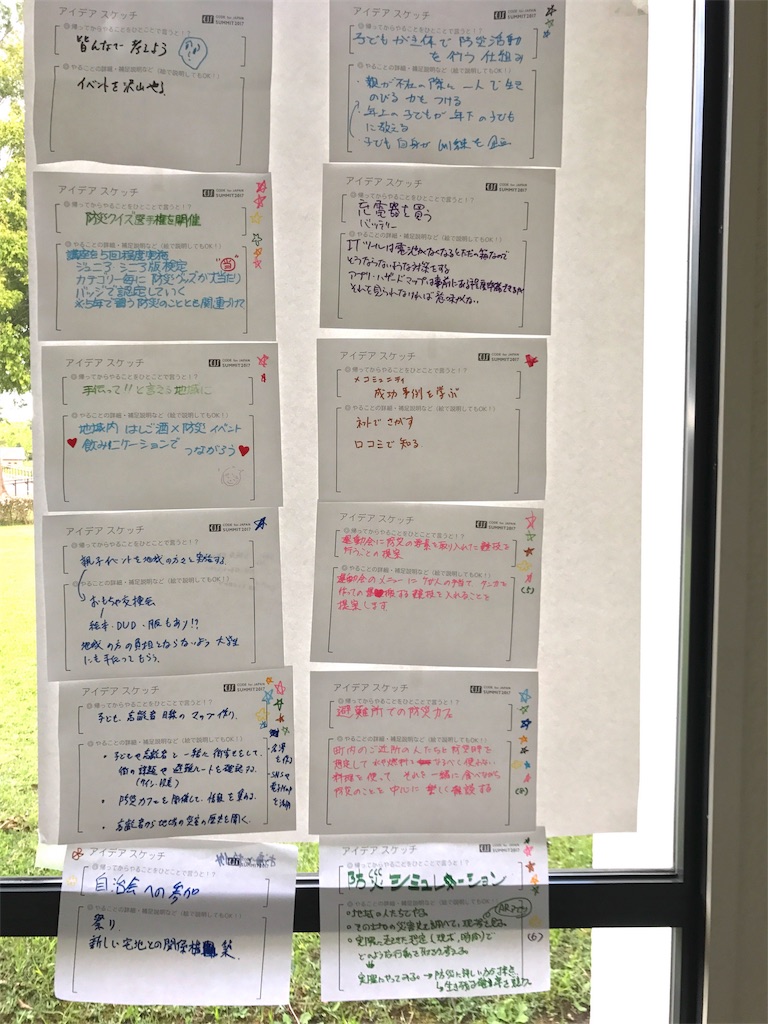 SUMMIT2017
◎帰ってからやることをひとことで言うと!?
皆んなで考えよう
◎やることの詳細・補足説明など(絵で説明してもOK!)
イベントを沢山やる
アイデア スケッチ
CODE for JAPAN
SUMMIT2017
◎帰ってからやることをひとことで言うと!?
防災クイズ選手権を開催
◎やることの詳細・補足説明など(絵で説明してもOK!)
講座を5回程度実施
ジュニア シニア版検定
カテゴリー毎に防災グッズが当たり
バッジで認定していく
※5年で習う防災のこととも関連づけて
アイデア スケッチ
CODE for JAPAN
SUMMIT2017
◎帰ってからやることをひとことで言うと!?
手伝って!!と言える地域に
◎やることの詳細・補足説明など(絵で説明してもOK!)
地域内 はしご酒×防災イベント
飲みにケーションで
つながろう
アイデア スケッチ
CODE for JAPAN
SUMMIT2017
◎帰ってからやることをひとことで言うと!?
親子イベントを地域の方々と実施する
◎やることの詳細・補足説明など(絵で説明してもOK!)
おもちゃ交換会
絵本・DVD・服もあり!?
地域の方の負担とならないよう 大学生
にも手伝ってもらう。
アイデア スケッチ
CODE for JAPAN
SUMMIT2017
◎帰ってからやることをひとことで言うと!?
子ども、高齢者目線のマップ作り。
◎やることの詳細・補足説明など(絵で説明してもOK!)
・子どもや高齢者と一緒に街歩きをして、
街の課題や避難ルートを確認する。
・防災カフェを開催して、情報を集める。
・高齢者から地域の災害の歴史を聞く。
アイデア スケッチ
◎帰ってからやることをひとことで言うと!?
自治会への参加
◎やることの詳細・補足説明など(絵で説明してもOK!)
祭り
新しい宅地との関係構築
SUMMIT2017
◎帰ってからやることをひとことで言うと!?
子どもが主体で防災活動
を行う仕組み
◎やることの詳細・補足説明など(絵で説明してもOK!)
・親が不在の際に一人で生き
のびる力をつける
・年上の子どもが年下の子ども
に教える
・子ども自身が訓練を企画
アイデア スケッチ
CODE for JAPAN
SUMMIT2017
◎帰ってからやることをひとことで言うと!?
充電器を買う
バッテリー
◎やることの詳細・補足説明など(絵で説明してもOK!)
ITツールは電池がなくなるとただの箱なので
そうならないような対策をする
アプリ・ハザードマップは事前にある程度準備できるが
それも見られなければ意味がない
アイデア スケッチ
CODE for JAPAN
SUMMIT2017
◎帰ってからやることをひとことで言うと!?
コミュニティ
成功事例を学ぶ
◎やることの詳細・補足説明など(絵で説明してもOK!)
ネットでさがす
口コミで知る
アイデア スケッチ
CODE for JAPAN
SUMMIT2017
◎帰ってからやることをひとことで言うと!?
運動会に防災の要素を取り入れた競技を
行うことの提案
◎やることの詳細・補足説明など(絵で説明してもOK!)
運動会のメニューに けが人の手当て、タンカを
作っての 搬送する競技を入れることを
提案します
(5)
アイデア スケッチ
CODE for JAPAN
SUMMIT2017
◎帰ってからやることをひとことで言うと!?
避難所での防災カフェ
◎やることの詳細・補足説明など(絵で説明してもOK!)
町内のご近所の人たちと防災時を
想定して 水や燃料をなるべく使わない
料理を使って それを一緒に食べながら
防災のことを中心に楽しく雑談する
(8)
アイデア スケッチ
CODE for JAPAN
SUMMIT2017
◎帰ってからやることをひとことで言うと!?
防災シミュレーション
◎やることの詳細・補足説明など(絵で説明してもOK!)
・地域の人たちでやる。
・その土地の災害史を調べて、現場を見る。
(6)